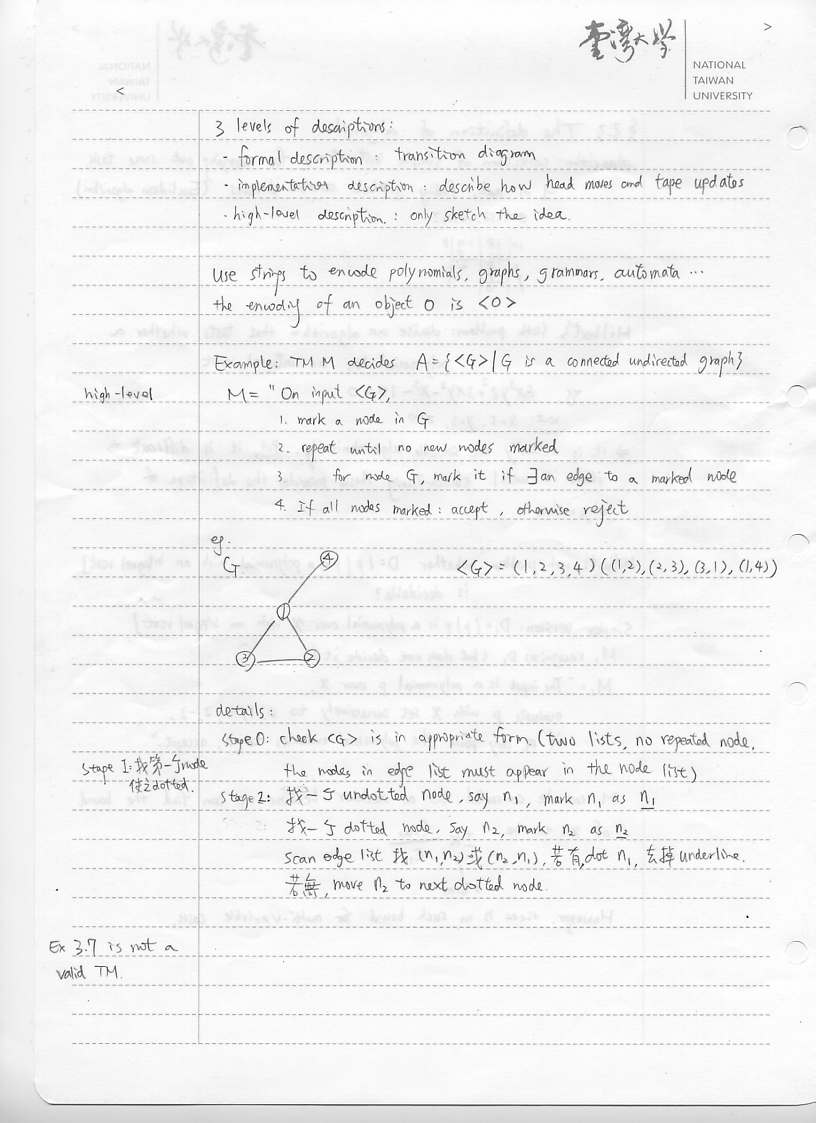 臺灣大學
NATIONAL
TAIWAN
UNIVERSITY
3 levels of descriptions:
- formal description: transition diagram
- implementation description: describe how head moves and tape updates
- high-level description: only sketch the idea.
Use strings to encode polynomials, graphs, grammars, automata ...
the encoding of an object O is <O>
Example: TM M decides A={<G>|G is a connected undirected graph}
high-level M= "On input <G>,
1. mark a node in G
2. repeat until no new nodes marked
3. for node G, mark it if ∃ an edge to a marked node
4. If all nodes marked: accept, otherwise reject
eg.
G <G>=(1,2,3,4)((1,2),(2,3),(3,1),(1,4))
4
1
3 2
details:
stage 0: check <G> is in appropriate form. (two lists, no repeated node,
the nodes in edge list must appear in the node list)
stage 1: 找第一个node
使之dotted.
stage 2: 找一个 undotted node, say n₁, mark n₁ as n₁
找一个 dotted node, say n₂, mark n₂ as n₂
scan edge list 找 (n₁,n₂) 或 (n₂,n₁), 若有, dot n₁, 去掉 underline.
若無, move n₂ to next dotted node.
Ex 3.7 is not a
valid TM.